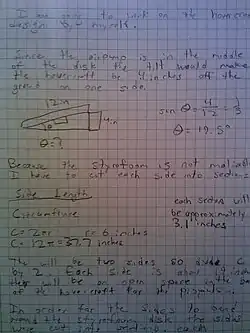 I am going to work on the hovercraft
design by myself.
Since the airpump is in the middle
of the disk the tilt would make
the hovercraft be 4 inches off the
ground on one side.
12in
4in
θ
θ=?
sin θ = 4/12 = 1/3
θ = 19.5°
Because the Styrofoam is not
I have to cut each side into sections
Side Length
Circumference
C=2πr r=6 inches
C=12π=37.7 inches
each section will
be approximately
3.1 inches
The will be two sides so divide C
by 2. Each side is about 19 inches
they will be an open space in the back
of the hovercraft for the
In order for the sides to bend
the sides
were cut into